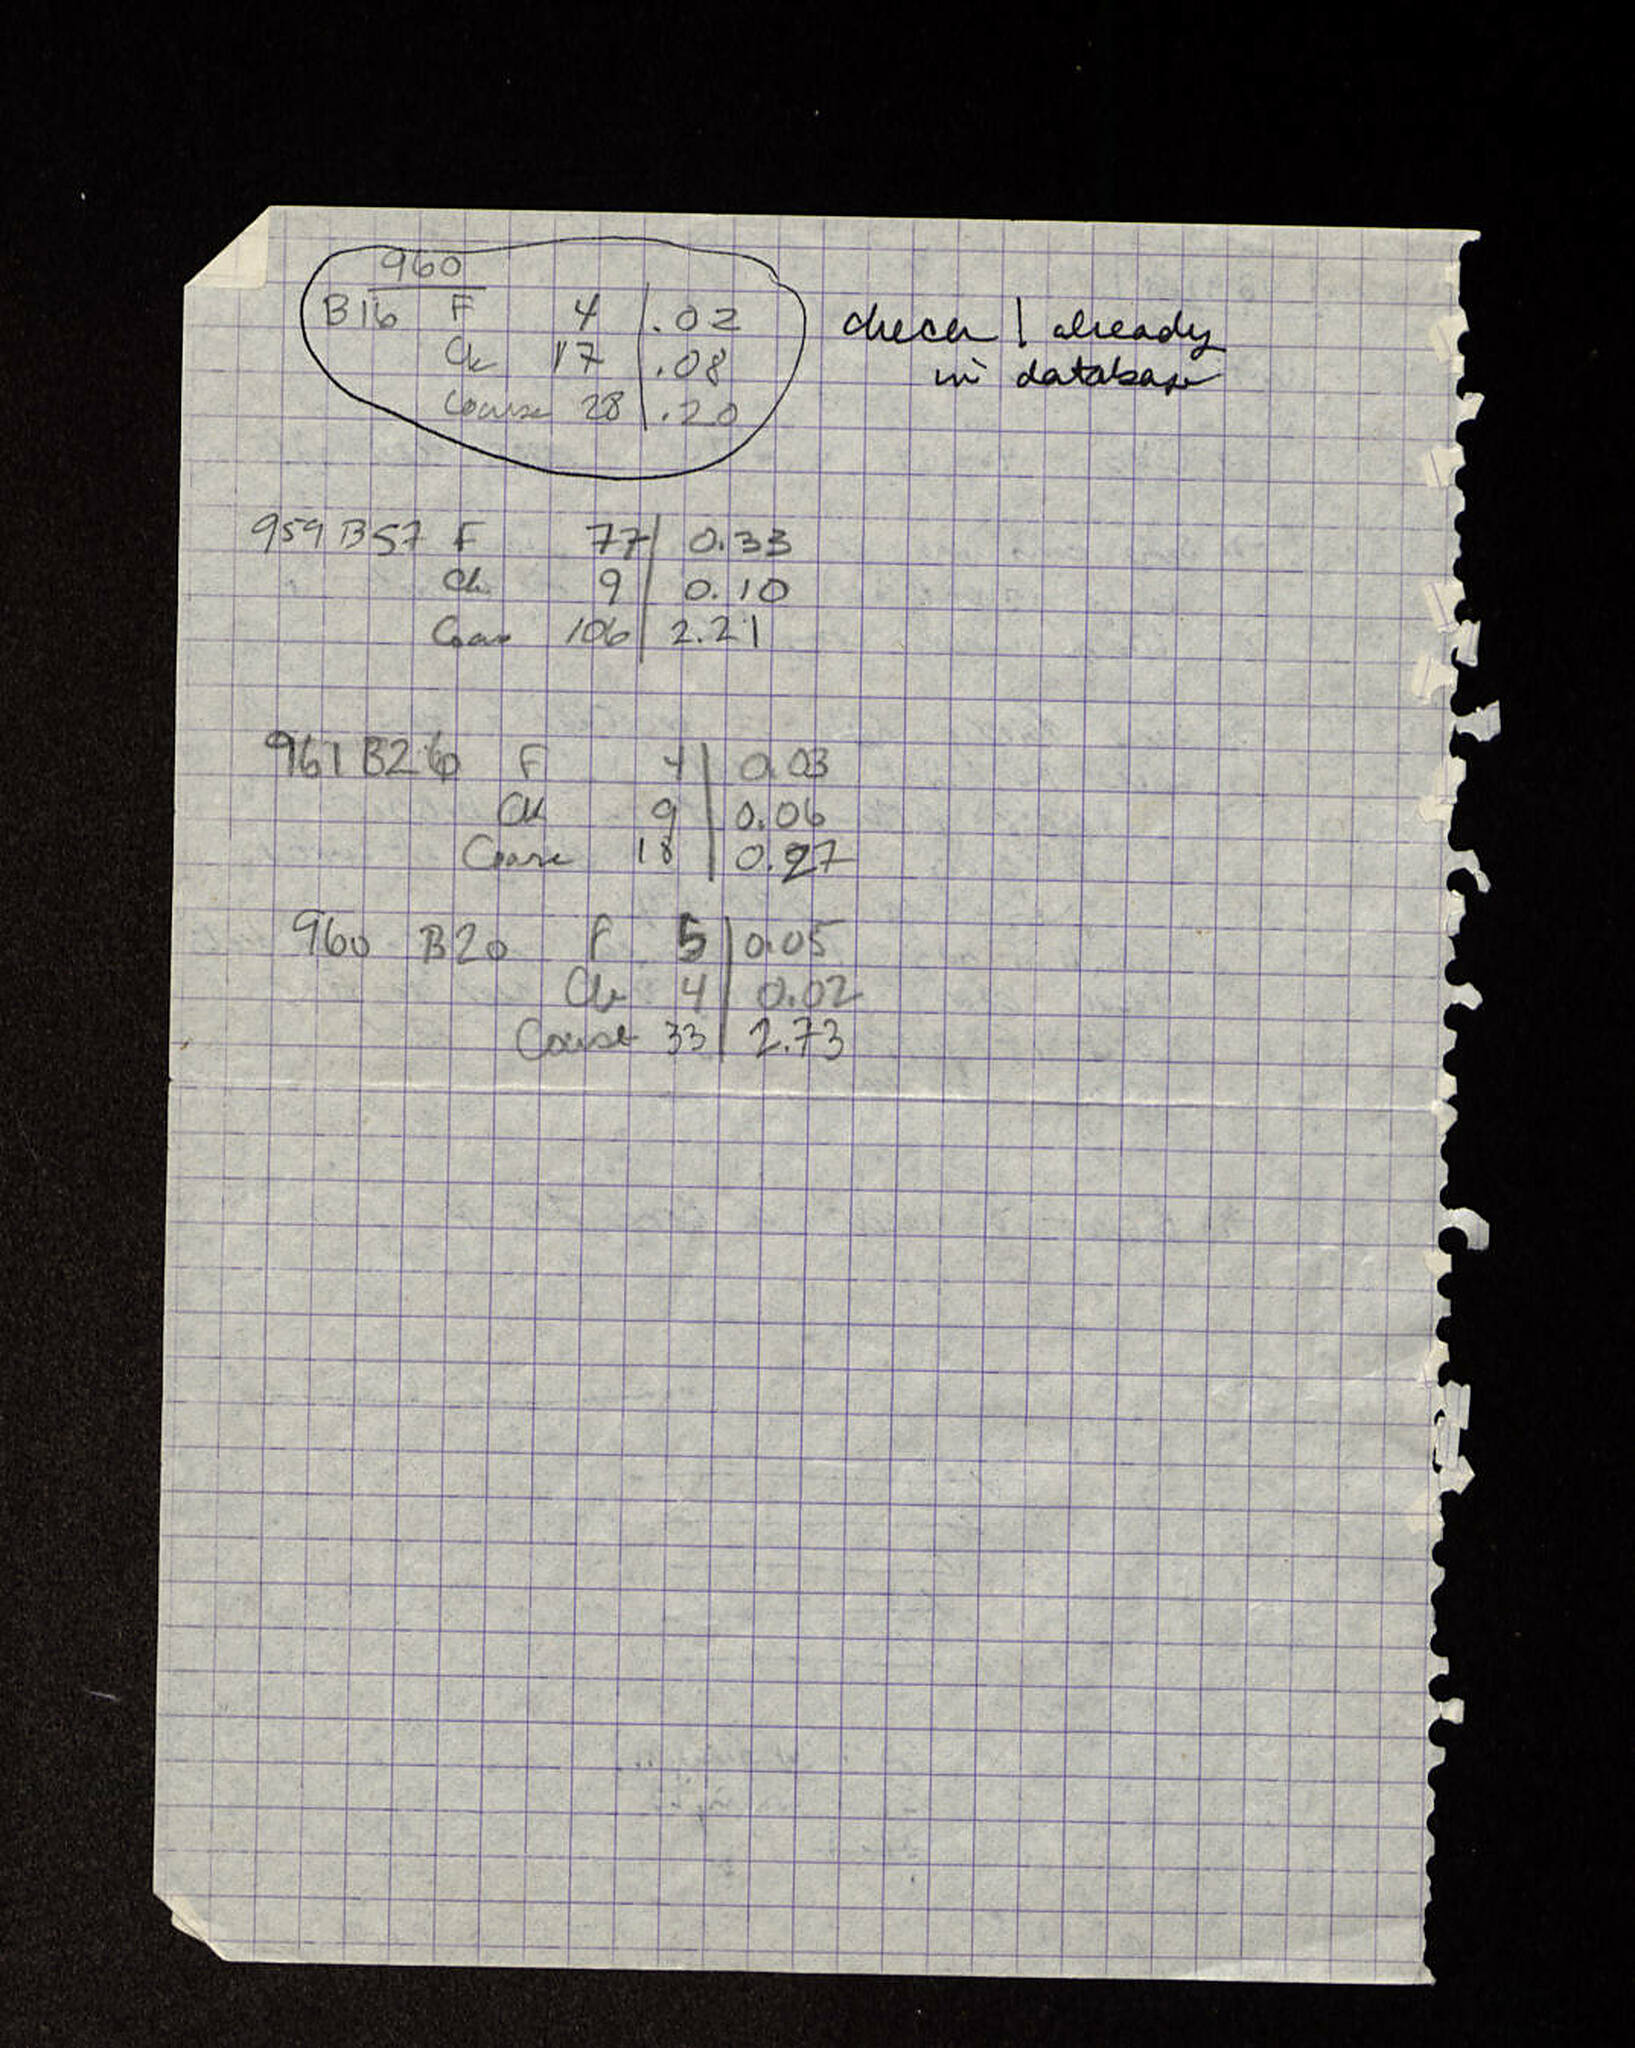 960
B16 F 4 | .02
Ck 17 | .08
Coarse 28 | .20
check | already
in database
959 B57 F 77 | 0.33
Ck 9 | 0.10
Coarse 106 | 2.21
961 B26 F 4 | 0.03
Ck 9 | 0.06
Coarse 18 | 0.27
960 B20 F 5 | 0.05
Ck 4 | 0.02
Coarse 33 | 2.73